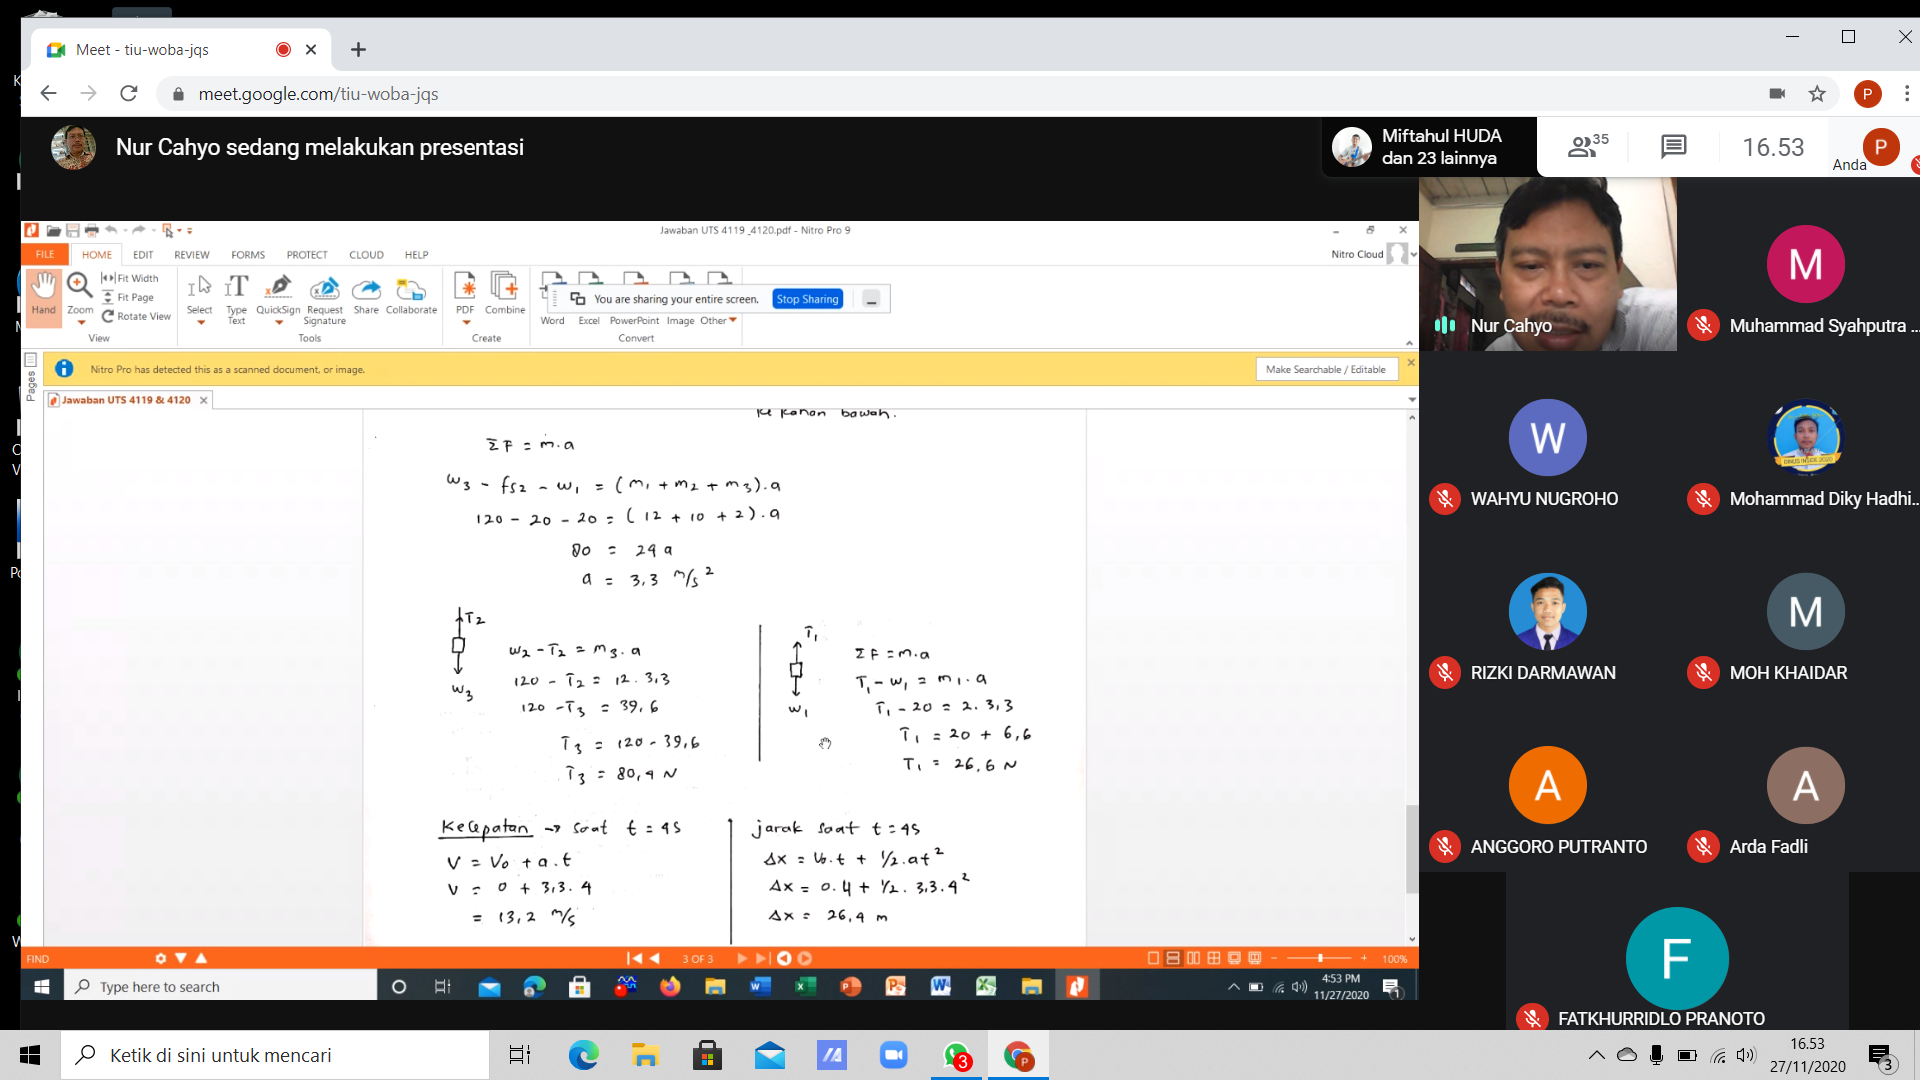 Meet - tiu-woba-jqs
meet.google.com/tiu-woba-jqs
P
Nur Cahyo sedang melakukan presentasi
Miftahul HUDA
dan 23 lainnya
35
16.53
Anda
P
Jawaban UTS 4119 _4120.pdf - Nitro Pro 9
FILE HOME EDIT REVIEW FORMS PROTECT CLOUD HELP
Nitro Cloud
Fit Width
Fit Page
Rotate View
Hand Zoom
Select Type Text QuickSign Request Signature Share Collaborate
PDF Combine
You are sharing your entire screen. Stop Sharing
Word Excel PowerPoint Image Other
View Tools Create Convert
Nitro Pro has detected this as a scanned document, or image.
Make Searchable / Editable
Pages
Jawaban UTS 4119 & 4120
ke kanan bawah.
ΣF = m.a
w3 - fs2 - w1 = (m1 + m2 + m3).a
120 - 20 - 20 = (12 + 10 + 2).a
80 = 24 a
a = 3,3 m/s²
T2
w3
w2 - T2 = m3.a
120 - T2 = 12.3,3
120 - T3 = 39,6
T3 = 120 - 39,6
T3 = 80,4 N
T1
w1
ΣF = m.a
T1 - w1 = m1.a
T1 - 20 = 2.3,3
T1 = 20 + 6,6
T1 = 26,6 N
Kecepatan → saat t = 4s
V = Vo + a.t
V = 0 + 3,3.4
= 13,2 m/s
jarak saat t = 4s
Δx = Vo.t + 1/2.at²
Δx = 0.4 + 1/2.3,3.4²
Δx = 26,4 m
FIND
3 OF 3
100%
Type here to search
4:53 PM
11/27/2020
1
Nur Cahyo
M
Muhammad Syahputra ...
W
WAHYU NUGROHO
Mohammad Diky Hadhi...
RIZKI DARMAWAN
M
MOH KHAIDAR
A
ANGGORO PUTRANTO
A
Arda Fadli
F
FATKHURRIDLO PRANOTO
Ketik di sini untuk mencari
3
P
16.53
27/11/2020
3